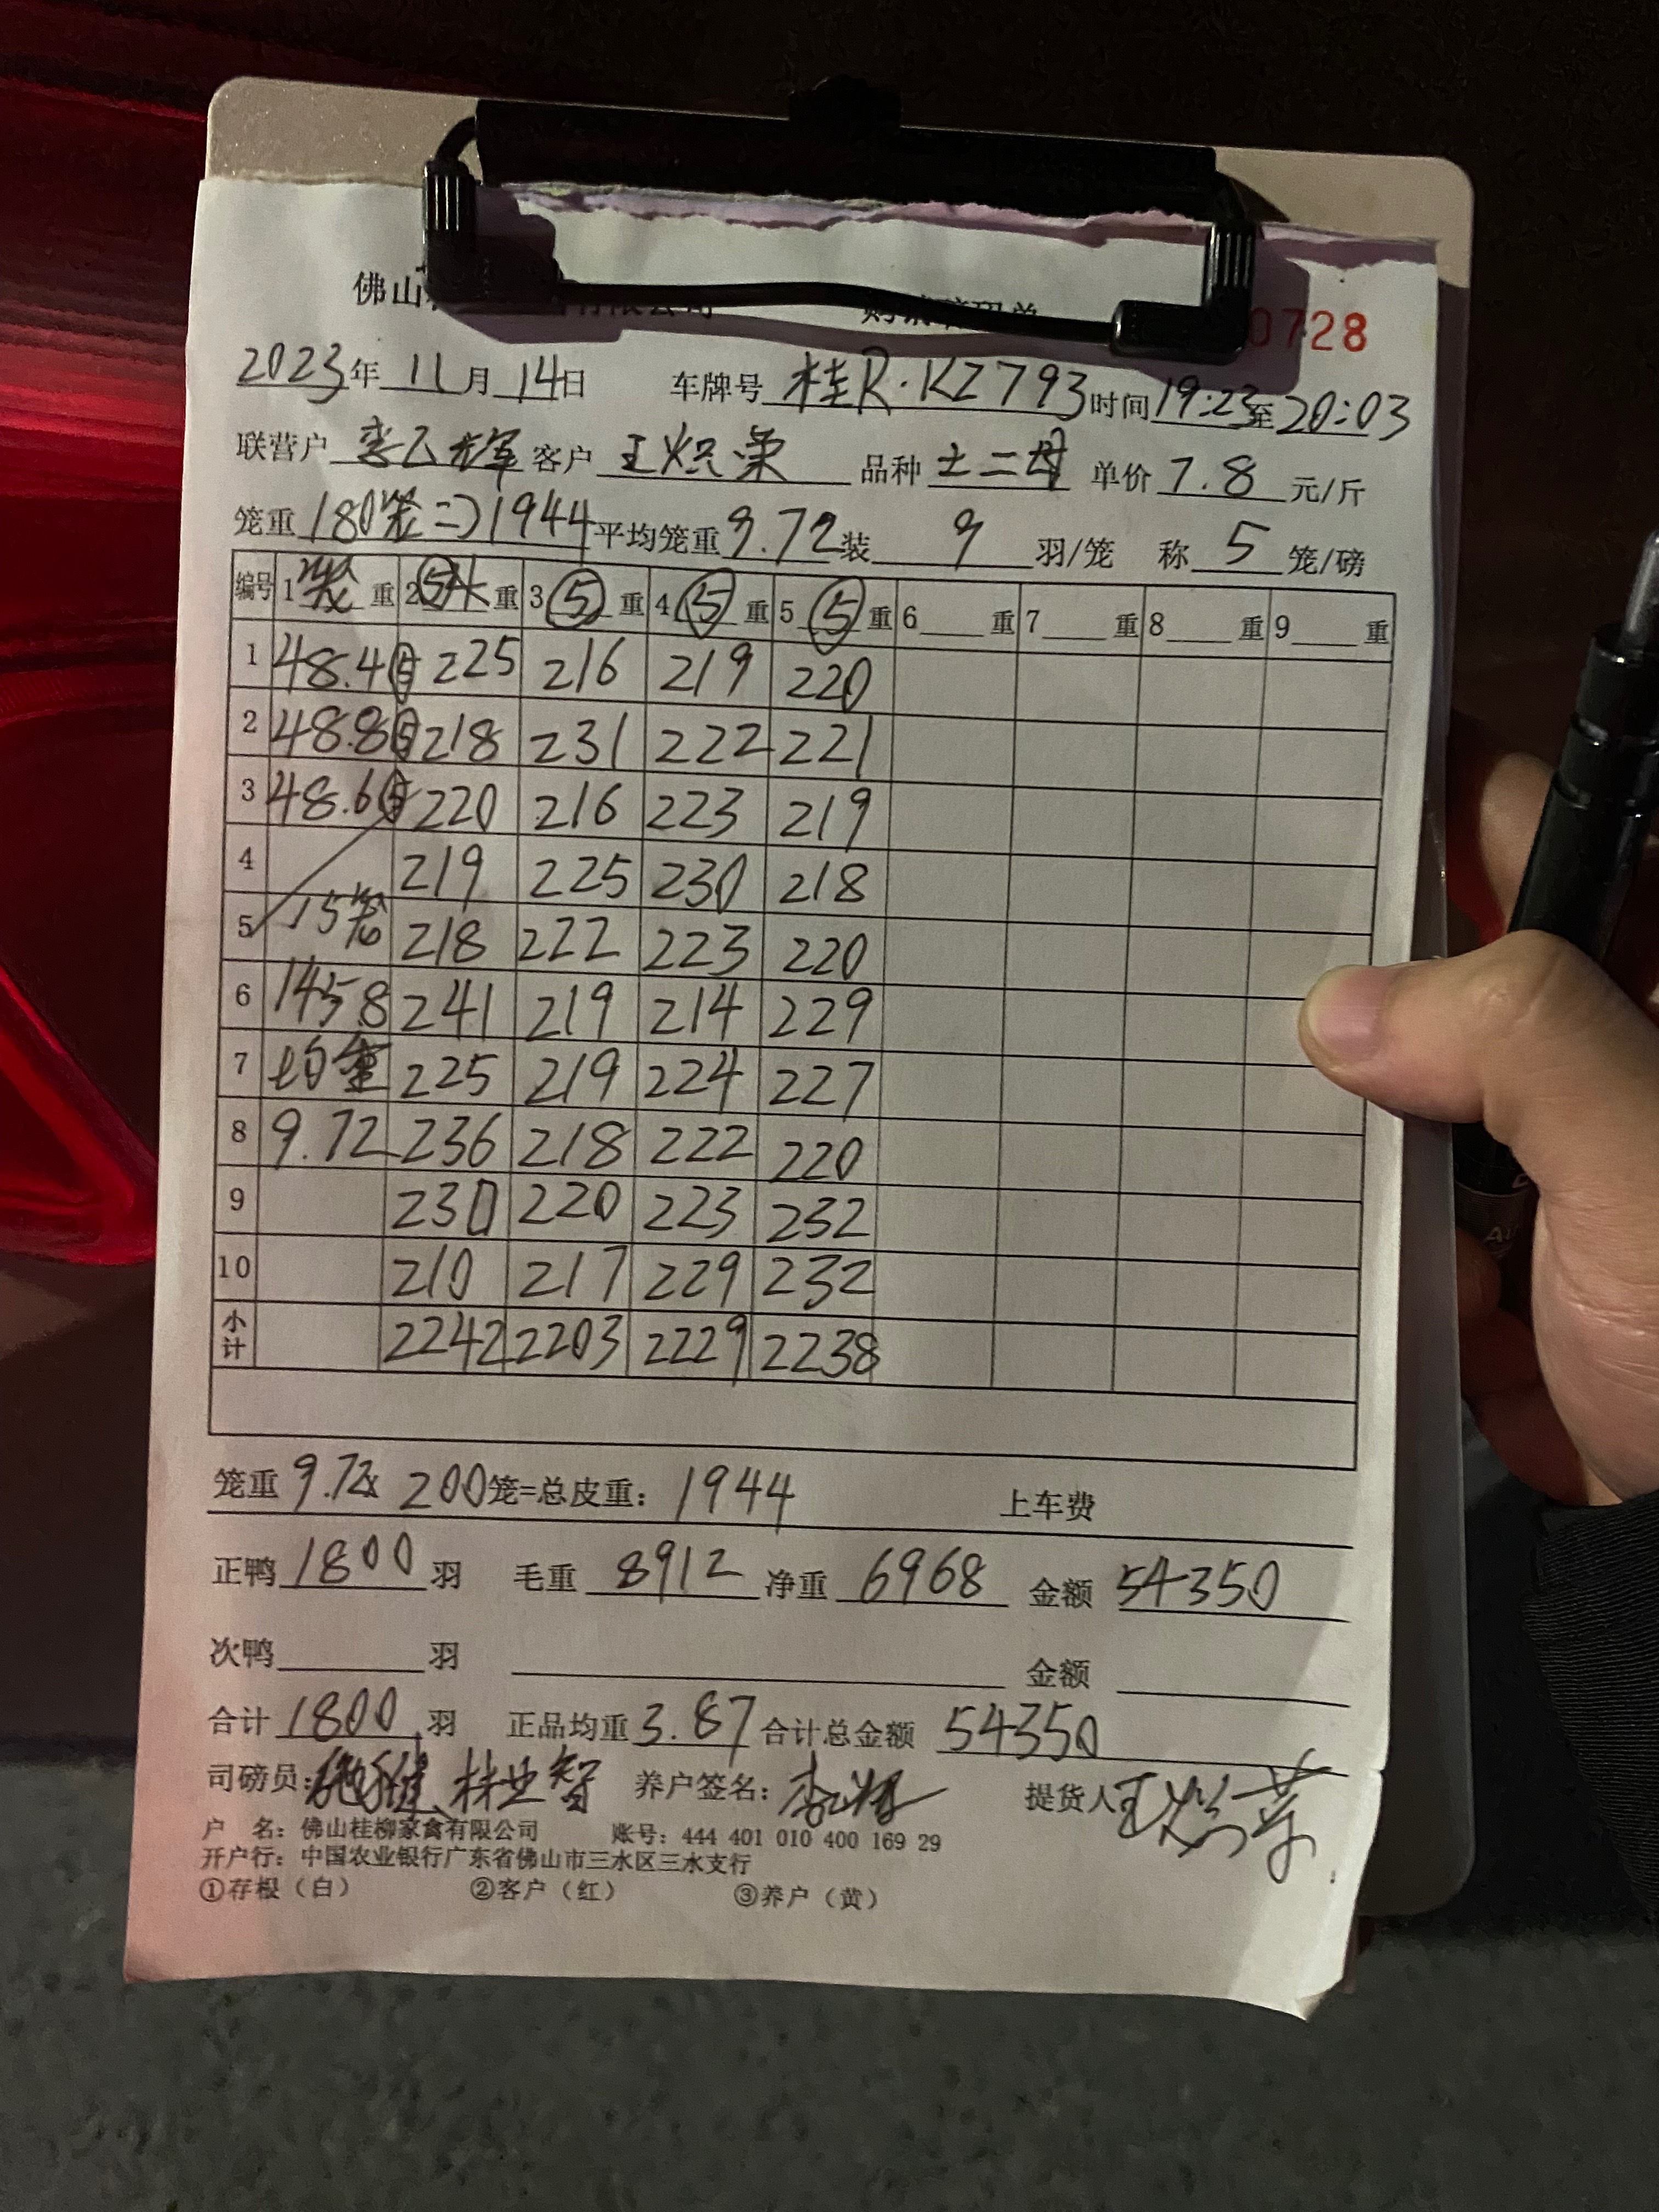 佛山 有限公司 0728
2023年11月14日 车牌号 桂R·KZ793 时间19:23至20:03
联营户 李乙辉 客户 王炽荣 品种 土二母 单价 7.8 元/斤
笼重 180笼=1944 平均笼重 9.72 装 9 羽/笼 称 5 笼/磅
编号 1 笼 重 2 ⑤ 重 3 ⑤ 重 4 ⑤ 重 5 ⑤ 重 6 重 7 重 8 重 9 重
1 48.4⑤ 225 216 219 220
2 48.8⑤ 218 231 222 221
3 48.6⑤ 220 216 223 219
4 219 225 230 218
5 15笼 218 222 223 220
6 145.8 241 219 214 229
7 均重 225 219 224 227
8 9.72 236 218 222 220
9 230 220 223 232
10 210 217 229 232
小计 2242 2203 2229 2238
笼重 9.72x 200笼=总皮重: 1944 上车费
正鸭 1800 羽 毛重 8912 净重 6968 金额 54350
次鸭 羽 金额
合计 1800 羽 正品均重 3.87 合计总金额 54350
司磅员: 林业智 养户签名: 提货人 王炽荣
户 名: 佛山桂柳家禽有限公司 账号: 444 401 010 400 169 29
开户行: 中国农业银行广东省佛山市三水区三水支行
①存根（白） ②客户（红） ③养户（黄）